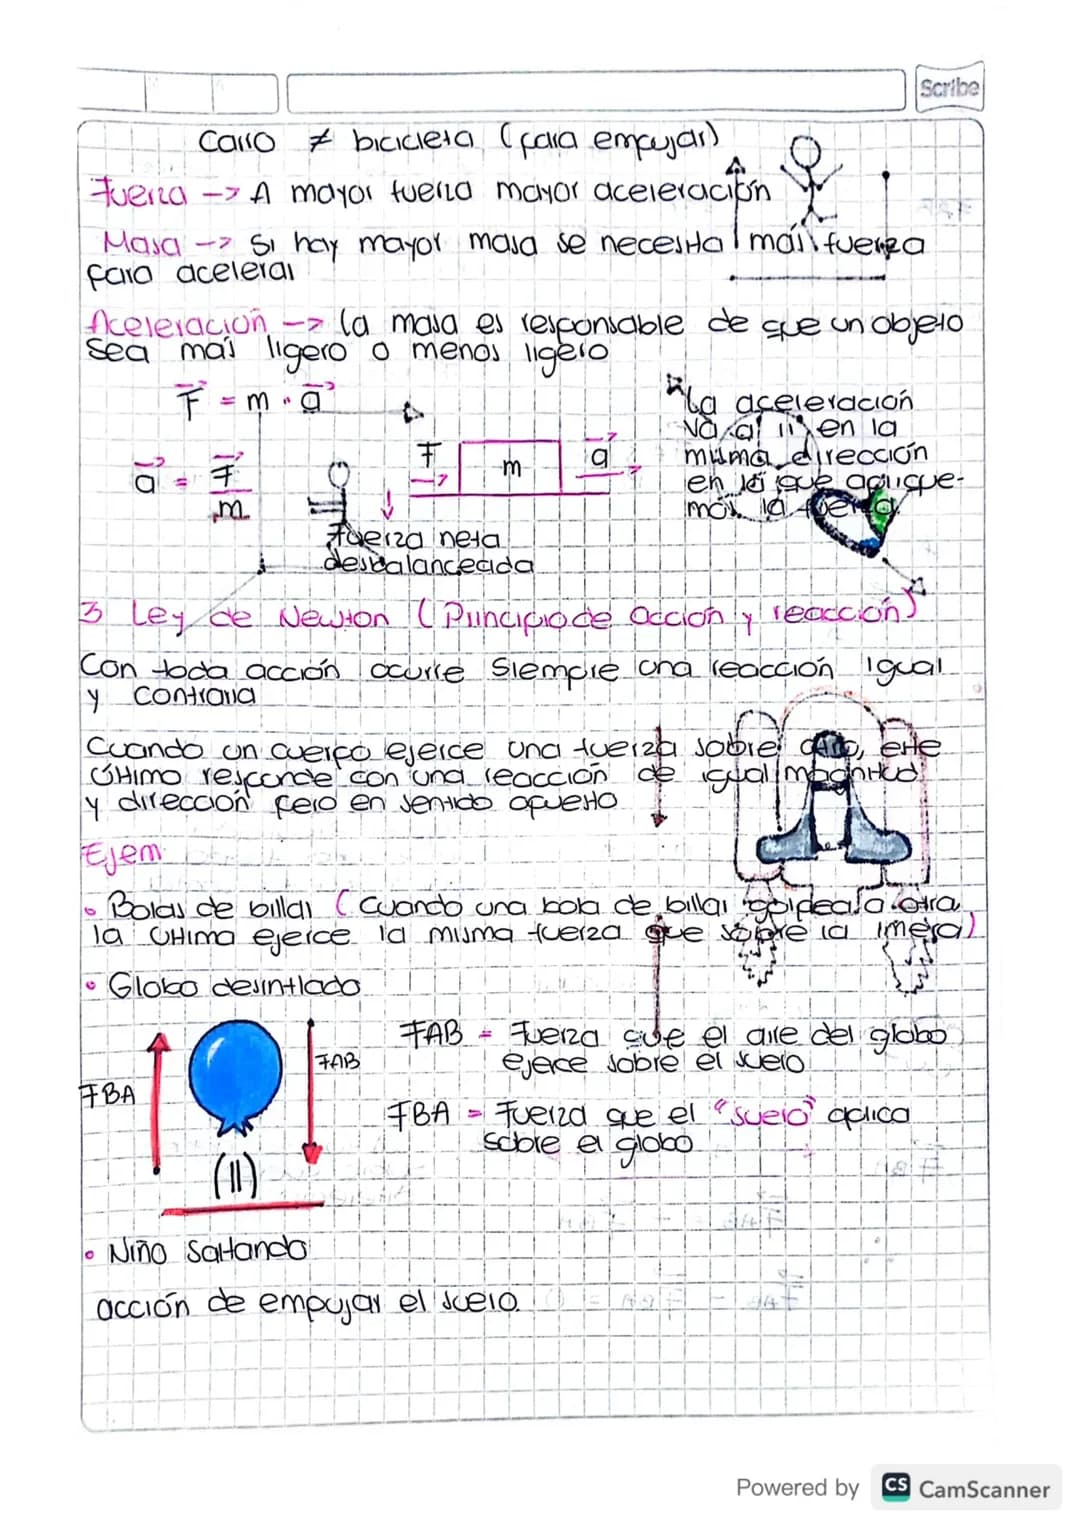 Scribe
Carro ≠ bicicleta (para empujar)
Fuerza -> A mayor fuerza mayor aceleración
Masa -> Si hay mayor masa se necesita más fuerza
para acelerar
Aceleración -> la masa es responsable de que un objeto
sea más ligero o menos ligero
F = m · a
a = F
m
F
m
a
Fuerza neta
desbalanceada
La aceleración
va a ir en la
misma dirección
en la que aplique-
mos la fuerza
3 Ley de Newton (Principio de acción y reacción)
Con toda acción ocurre siempre una reacción igual
y contraria
Cuando un cuerpo ejerce una fuerza sobre otro, este
último responde con una reacción de igual magnitud
y dirección pero en sentido opuesto
Ejem
• Bolas de billar (cuando una bola de billar golpea la otra
la última ejerce la misma fuerza que sobre la imera)
• Globo desinflado
FBA
FAB
(II)
FAB = Fuerza que el aire del globo
ejerce sobre el suelo
FBA = Fuerza que el "suelo" aplica
sobre el globo
• Niño saltando
acción de empujar el suelo.
Powered by CS CamScanner